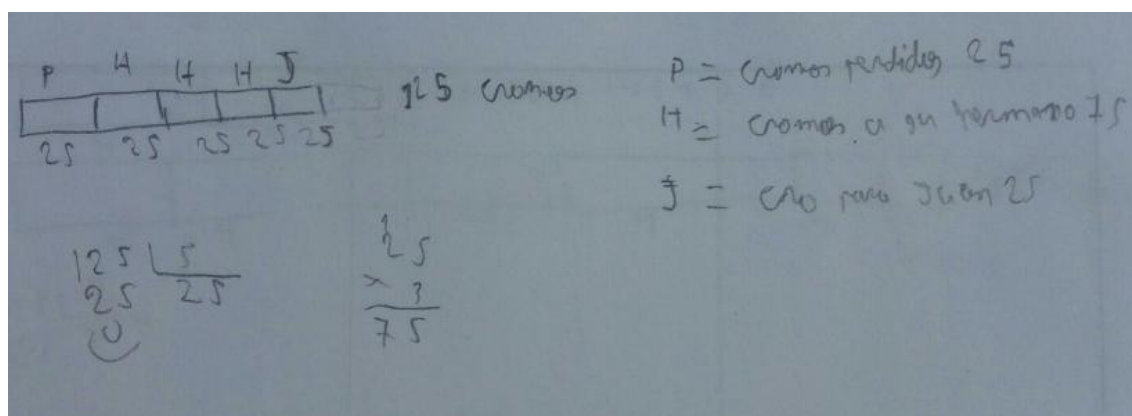 P H H H J
125 cromos
25 25 25 25 25
P = cromos perdidos 25
H = cromos a su hermano 75
J = cro para Juan 25
125 5
25 25
0
1
25
× 3
75